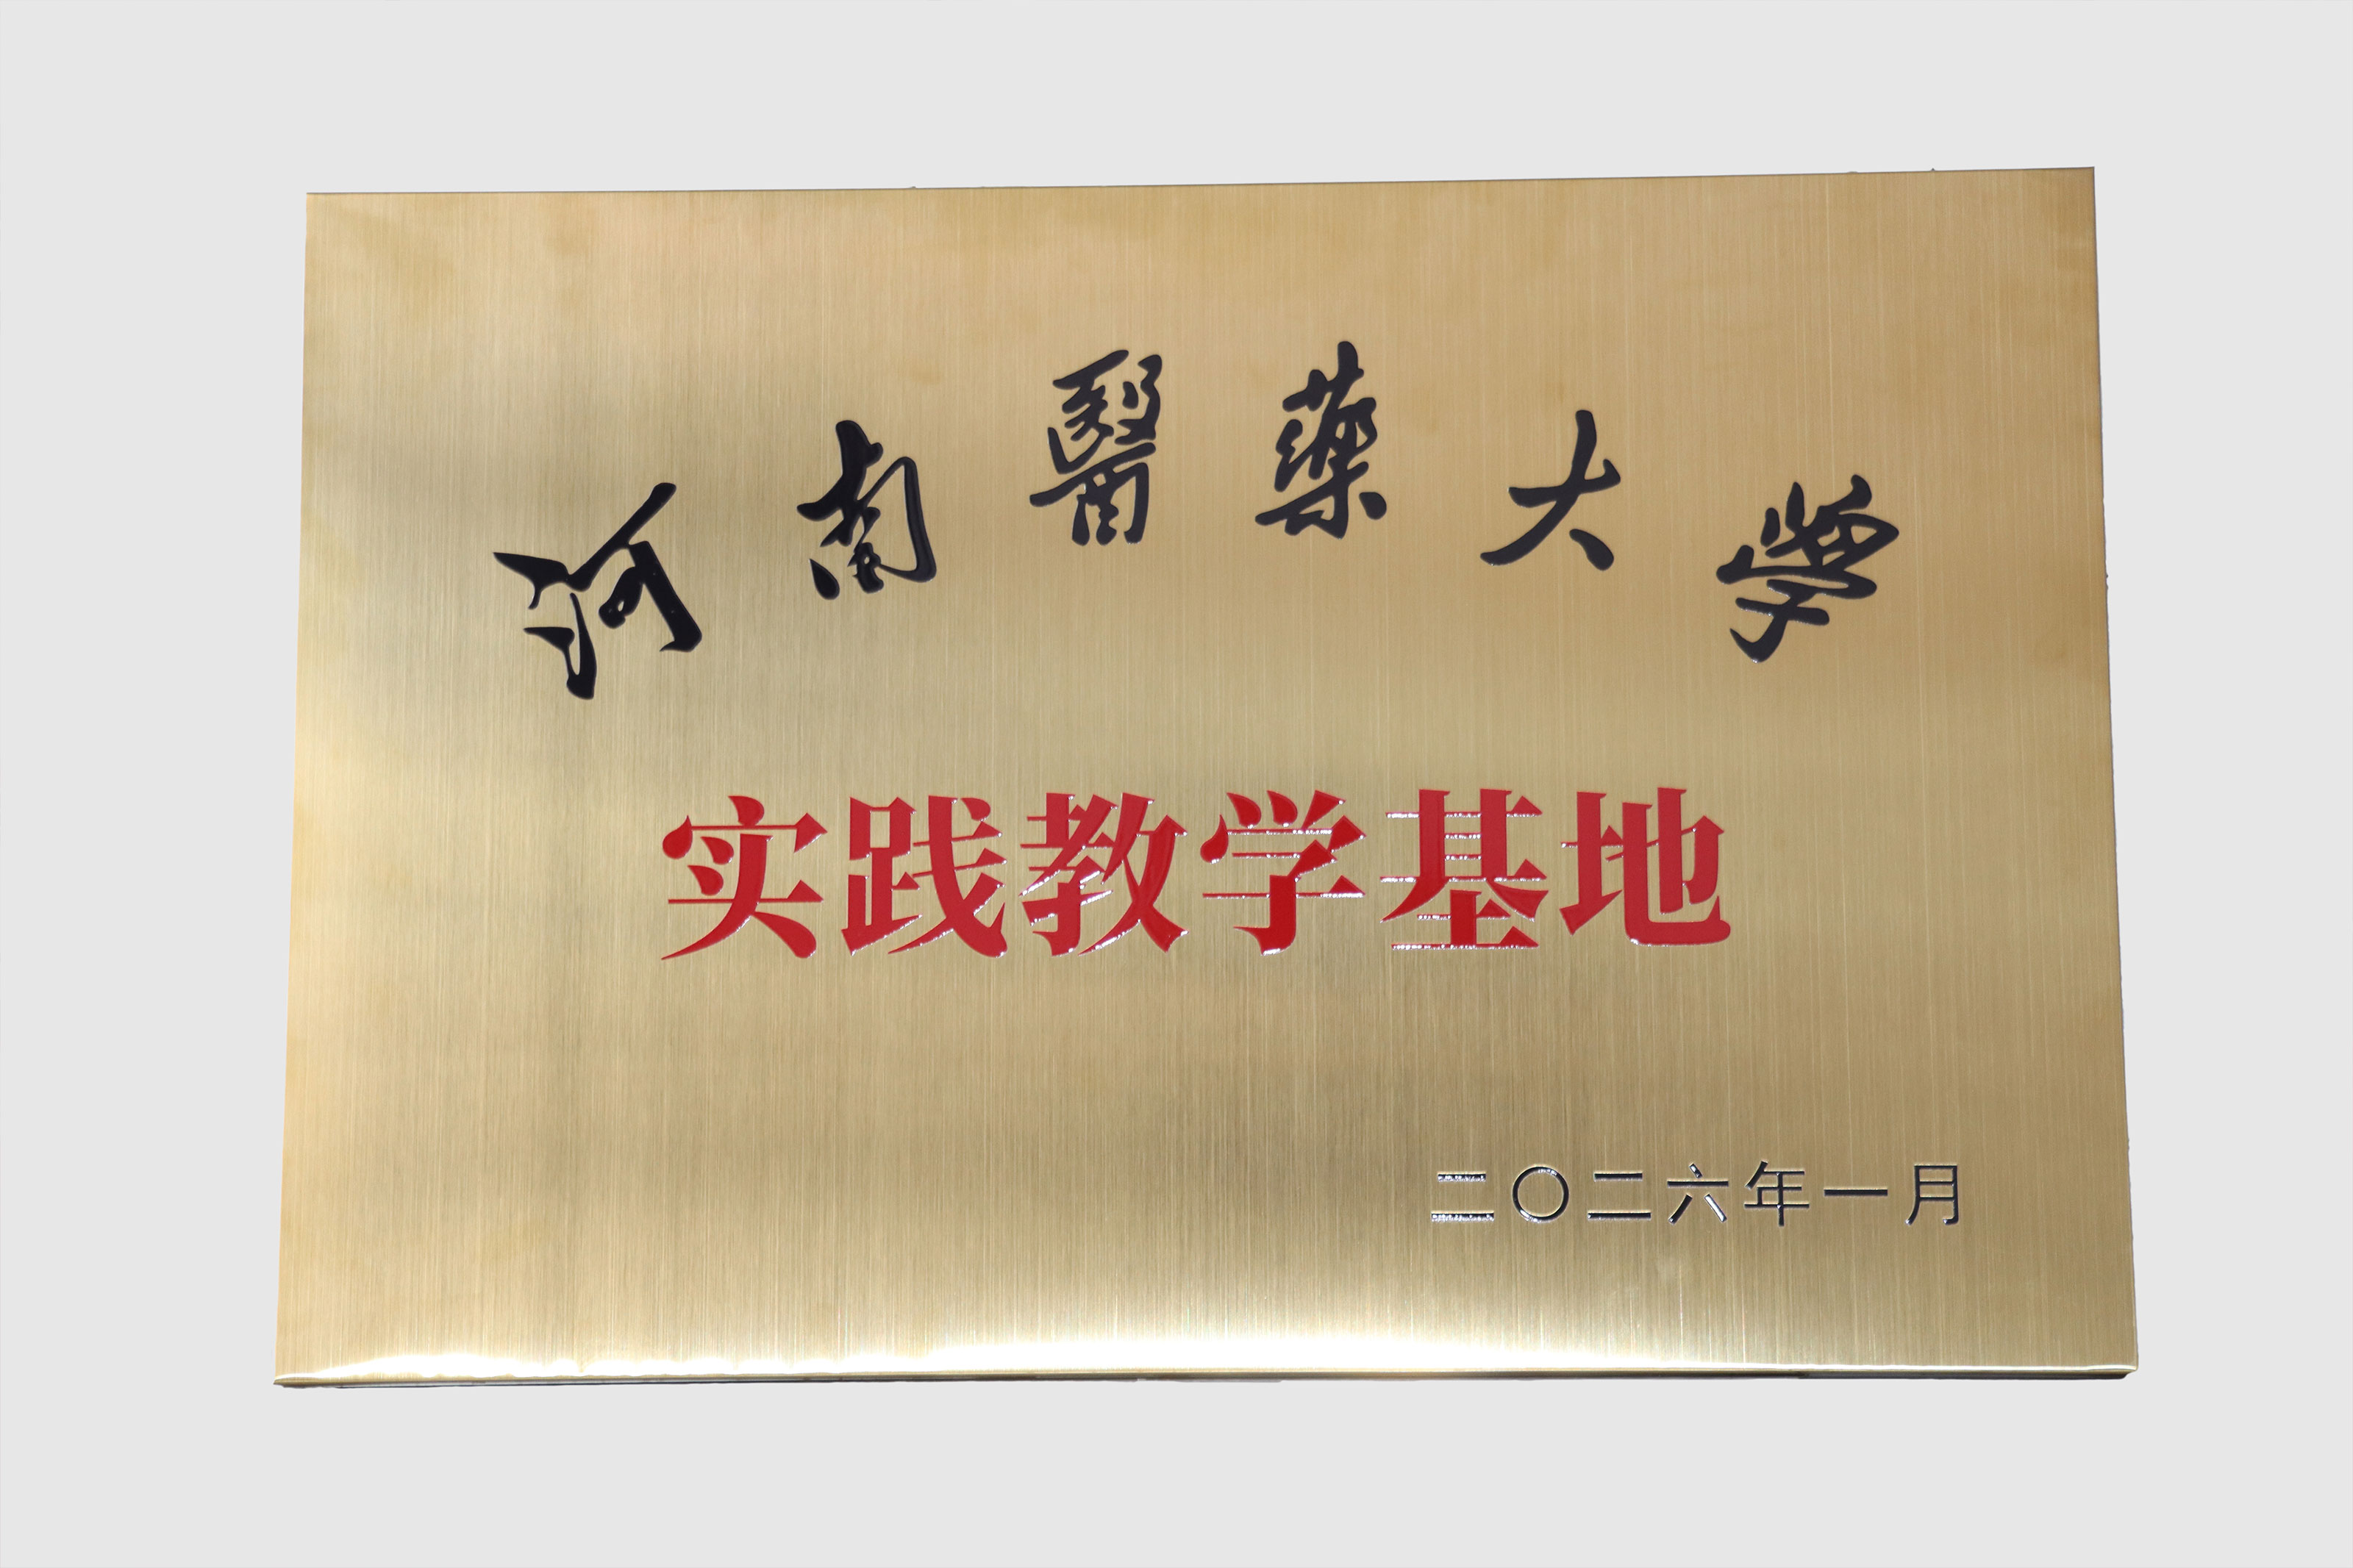 河南醫藥大学
实践教学基地
二〇二六年一月